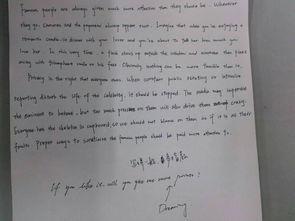 Famous people are always given much more attention than they should be. Wherever
they go, Cameras and the paparazzi always appear soon. Imagine that when you're enjoying a
romantic candle-lit dinner with your lover and you're about to tell her how much you
love her. In this very time, a flash shows up outside the window and someone flees
away with triumphant smile on his face. Obviously nothing can be more terrible than
Privacy is the right that everyone owns. When constant public scrutiny or intensive
reporting disturb the life of the celebrity, it should be stopped. The media may supervise
the eminent to behave, but too much pressure on them will also drive them crazy.
Everyone has the skeleton in cupboard, so we should not blame on them as if it is all their
faults. Proper ways to scrutinize the famous people should be paid more attention to.
If you like it, will you give me more
Dreaming